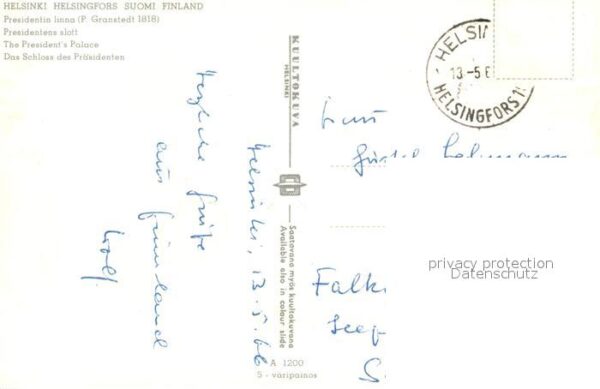 HELSINKI HELSINGFORS SUOMI FINLAND
Presidentin linna (P. Granstedt 1818)
Presidentens slott
The President's Palace
Das Schloss des Präsidenten
KUULTOKUVA
HELSINKI
Saatavana myös kuultokuvana
Available also in colour slide
A 1200
5 - väripainos
HELSIN
13-5 6
HELSINGFORS 1
Helsinki, 13.5.66
Herzliche Grüße
aus Finnland
Wolf.
Frau
Lehmann
Falk
See
S
privacy protection
Datenschutz